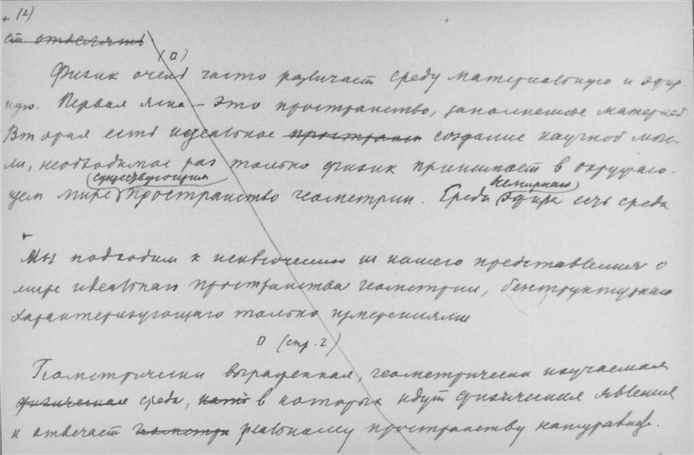 + (2)
ст отвечать
(а)
Физик очень часто различает среду материальную и эфир-
ную. Первая ясна – это пространство, заполненное материей.
Вторая есть идеальное простран создание научной мыс-
ли, необходимое раз только физик принимает в окружаю-
(существующим всемирного)
щем мире пространство геометрии. Среда эфира есть среда
Мы подходим к исключению из нашего представления о
мире идеального пространства геометрии, бесструктурного
характеризующаго только измерениями
□ (стр. 2)
Геометрически выраженная, геометрически изучаемая
физическая среда, в которых идут физические явления
и отвечает геометри реальному пространству натуралиста.